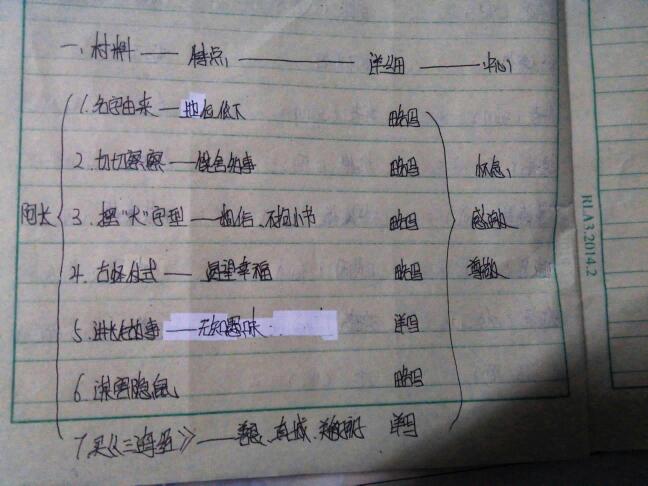 一、材料 —— 特点 —— 详细 —— 中心
1.名字由来 — 地位低下 略写
2.切切察察 — 饶舌多事 略写 怀念
阿长 3.摆"大"字型 — 粗俗、不拘小节 略写 感激
4.古怪仪式 — 渴望幸福 略写 尊敬
5.讲长毛故事 — 无知愚昧 详写
6.谋害隐鼠 略写
7.买《三海经》 — 善良、真诚、关心 详写
RLA3.2014.2